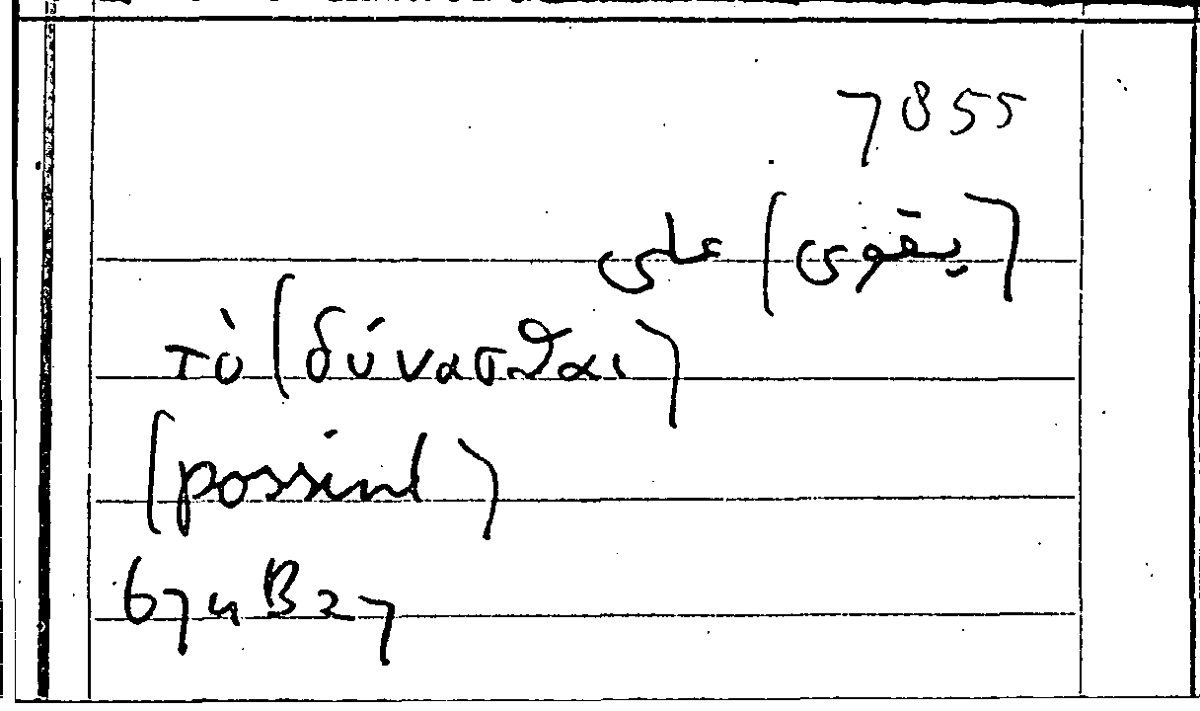 7855
(يقوى) على
τὸ (δύνασθαι)
(possint)
674B27